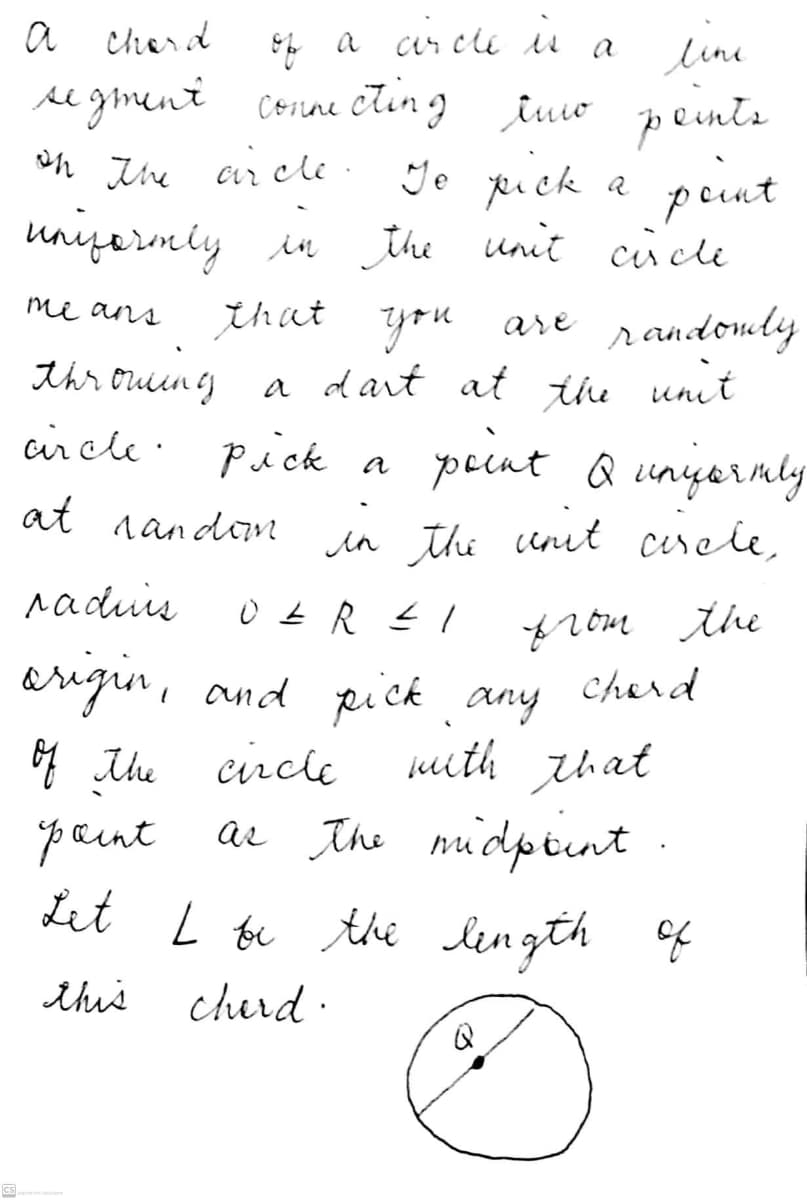 A chord of a circle is a line
segment connecting two points
on the circle. To pick a point
uniformly in the unit circle
means that you are randomly
throwing a dart at the unit
circle. Pick a point Q uniformly
at random in the unit circle,
radius 0 ≤ R ≤ 1 from the
origin, and pick any chord
of the circle with that
point as the midpoint.
Let L be the length of
this chord.
Q
CS